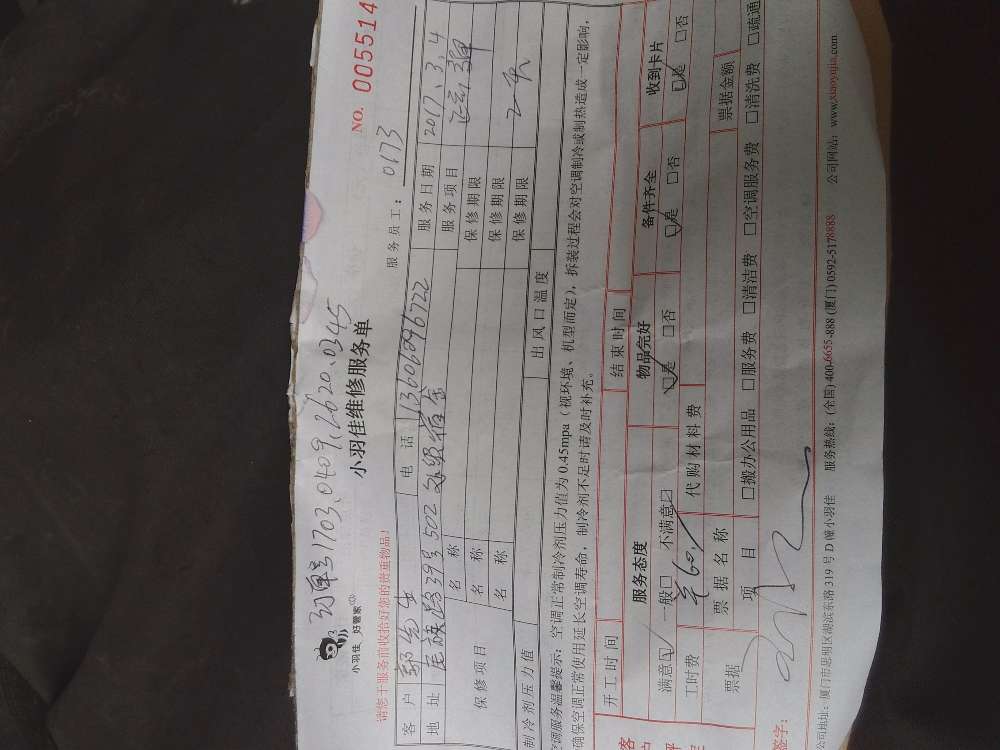 订单号1703.0409.2620.0345
小羽佳 好管家
小羽佳维修服务单
NO. 005514
请您于服务前收拾好您的贵重物品!
服务员工: 0173
客户 郭先生 电话 13606096722 服务日期 2017.3.4
地址 民族路39号502 服务项目
名称 保修期限
保修项目 名称 保修期限
名称 保修期限
制冷剂压力值 出风口温度
空调服务温馨提示:空调正常制冷剂压力值为 0.45mpa(视环境、机型而定),拆装过程会对空调制冷或制热造成一定影响,
确保空调正常使用延长空调寿命,制冷剂不足时请及时补充。
开工时间 结束时间
服务态度 物品完好 备件齐全 收到卡片
满意☑ 一般□ 不满意□ ☑是 □否 ☑是 □否 ☑是 □否
工时费 代购材料费
票据 票据名称 票据金额
项目 □搬办公用品 □服务费 □清洁费 □空调服务费 □清洗费 □疏通
签字:
公司地址:厦门市思明区湖滨东路 319 号 D 幢小羽佳 服务热线:(全国) 400-6655-888 (厦门) 0592-5178888 公司网站:www.xiaoyujia.com